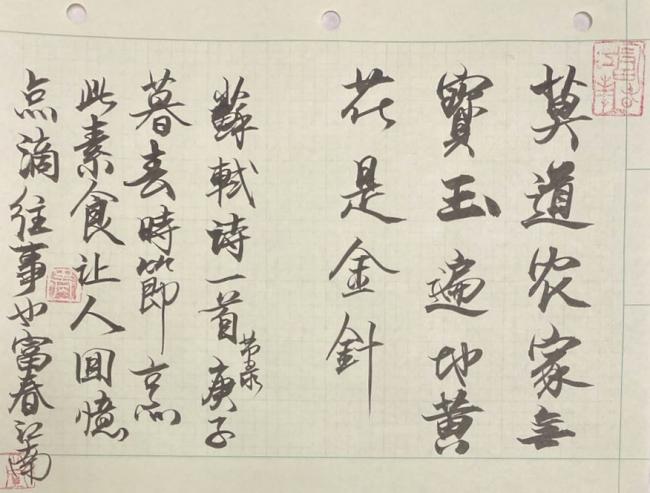 莫道农家無
寶玉遍地黄
花是金針
蘇軾詩一首节录庚子
暮春時節烹
此素食让人回憶
点滴往事也富春江南